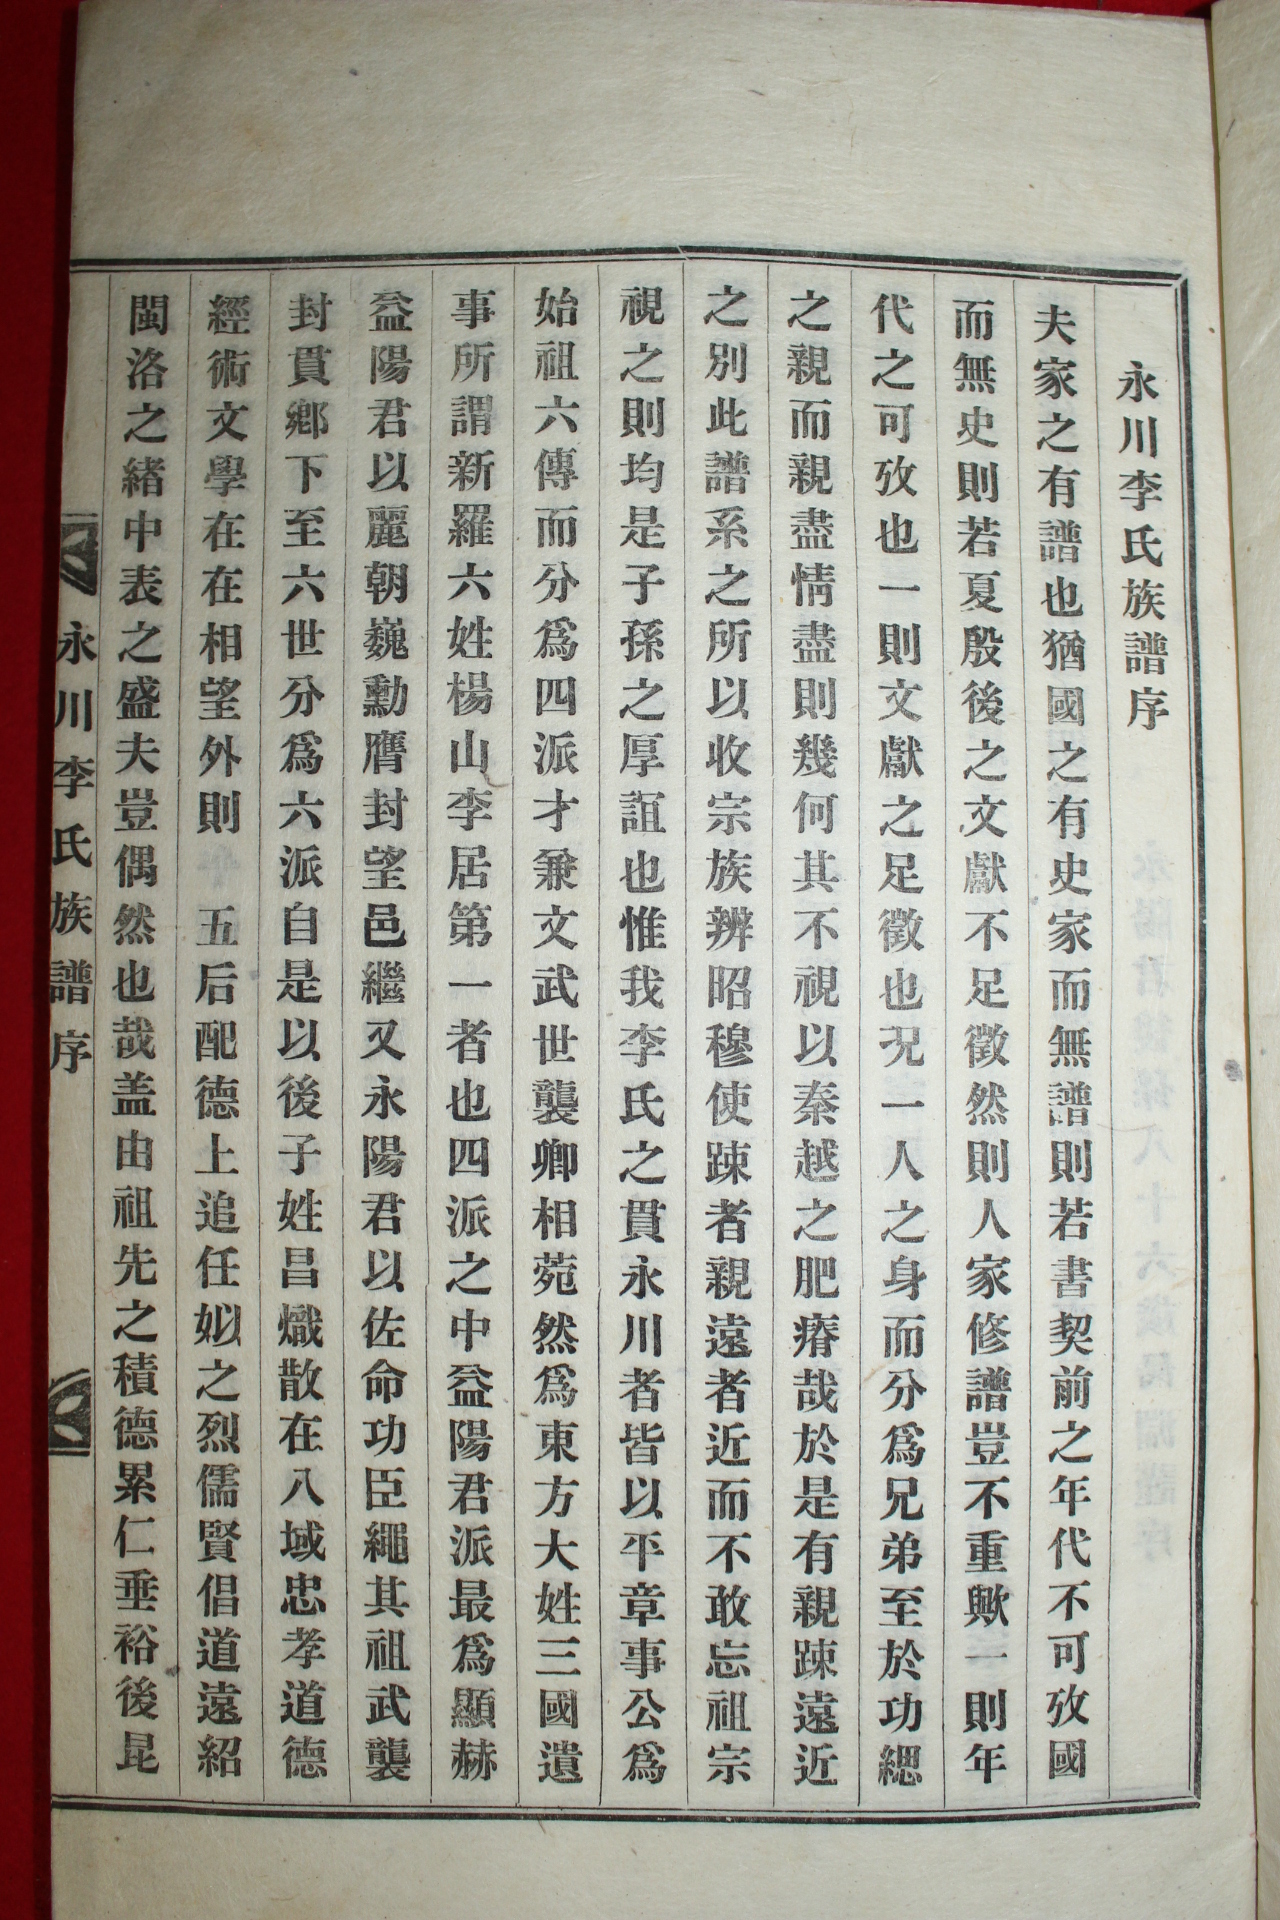 永川李氏族譜序
夫家之有譜也猶國之有史家而無譜則若書契前之年代不可攷國
而無史則若夏殷後之文獻不足徵然則人家修譜豈不重歟一則年
代之可攷也一則文獻之足徵也況一人之身而分爲兄弟至於功緦
之親而親盡情盡則幾何其不視以秦越之肥瘠哉於是有親踈遠近
之別此譜系之所以收宗族辨昭穆使踈者親遠者近而不敢忘祖宗
視之則均是子孫之厚誼也惟我李氏之貫永川者皆以平章事公爲
始祖六傳而分爲四派才兼文武世襲卿相菀然爲東方大姓三國遺
事所謂新羅六姓楊山李居第一者也四派之中益陽君派最爲顯赫
益陽君以麗朝巍勳膺封望邑繼又永陽君以佐命功臣繩其祖武襲
封貫鄕下至六世分爲六派自是以後子姓昌熾散在八域忠孝道德
經術文學在在相望外則 五后配德上追任姒之烈儒賢倡道遠紹
閩洛之緖中表之盛夫豈偶然也哉盖由祖先之積德累仁垂裕後昆
永川李氏族譜序